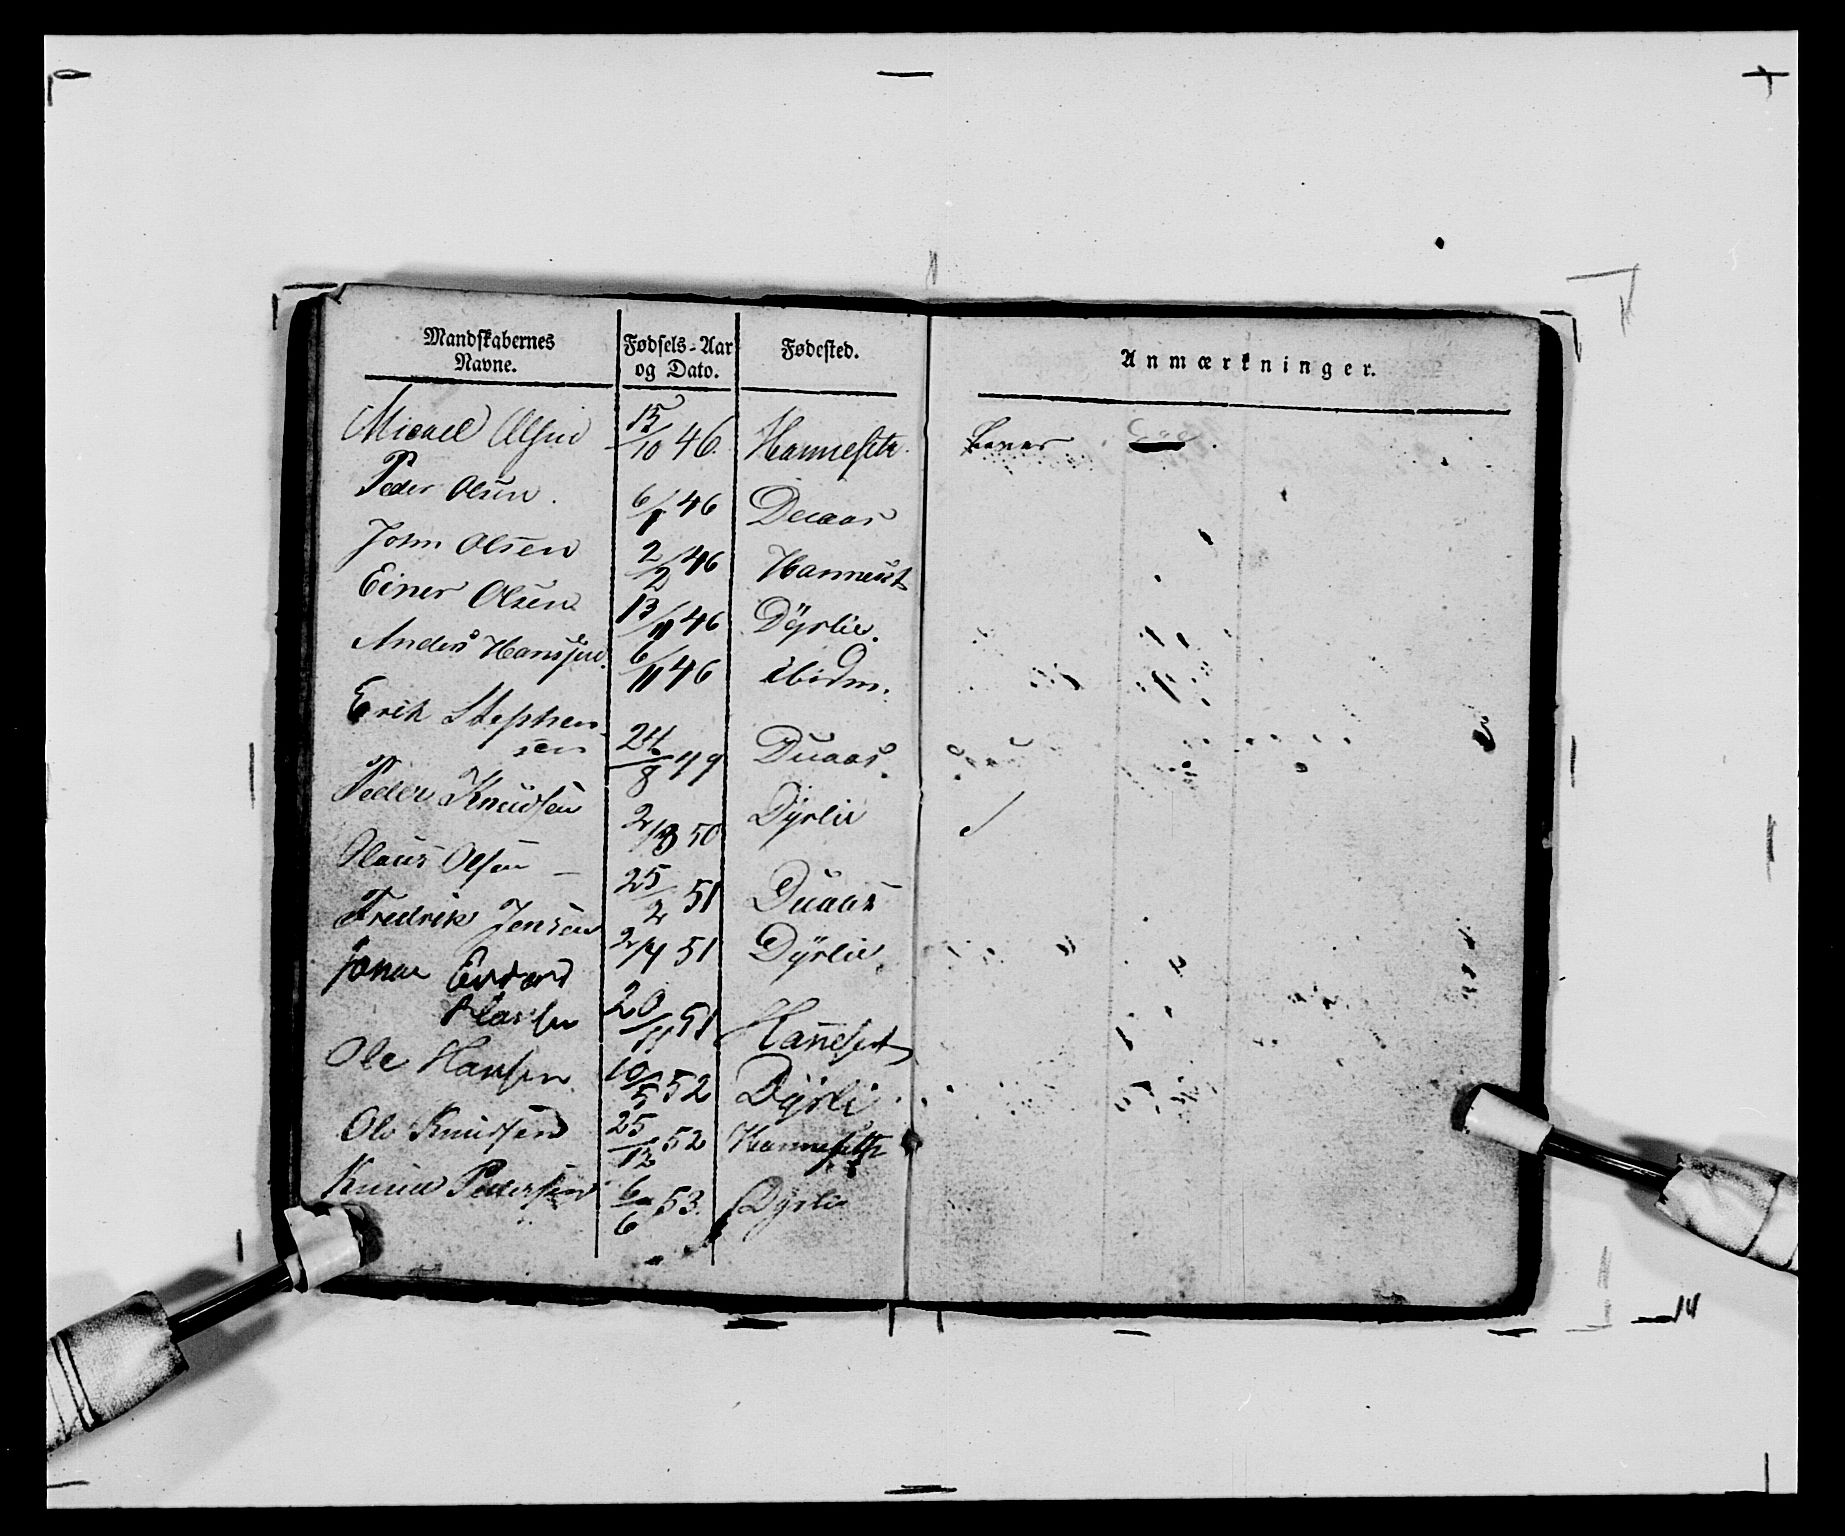 Mandskabernes Navne. Fødsels-Aar og Dato. Fødested. Anmærkninger.
Micael Olsen 15/10 46. Hannesete.
Peder Olsen. 6/1 46 Duaas
John Olsen 2/2 46 Hannest
Einer Olsen 13/11 46 Dÿrlie.
Anders Hanssen. 6/11 46 ibidm.
Erik Stephen-
sen 24/8 49 Duaas.
Peder Knudsen 2/8 50 Dÿrlie
Olaus Olsen — 25/2 51 Duaas
Fredrik Jensen 2/4 51 Dÿrlie
Edvard
Larsen 20/11 51 Hanneset
Ole Hansen 10/5 52 Dÿrli
Ole Knudsen 25/12 52 Hannesette
Knud Pedersen 6/6 53. Dyrlie
14